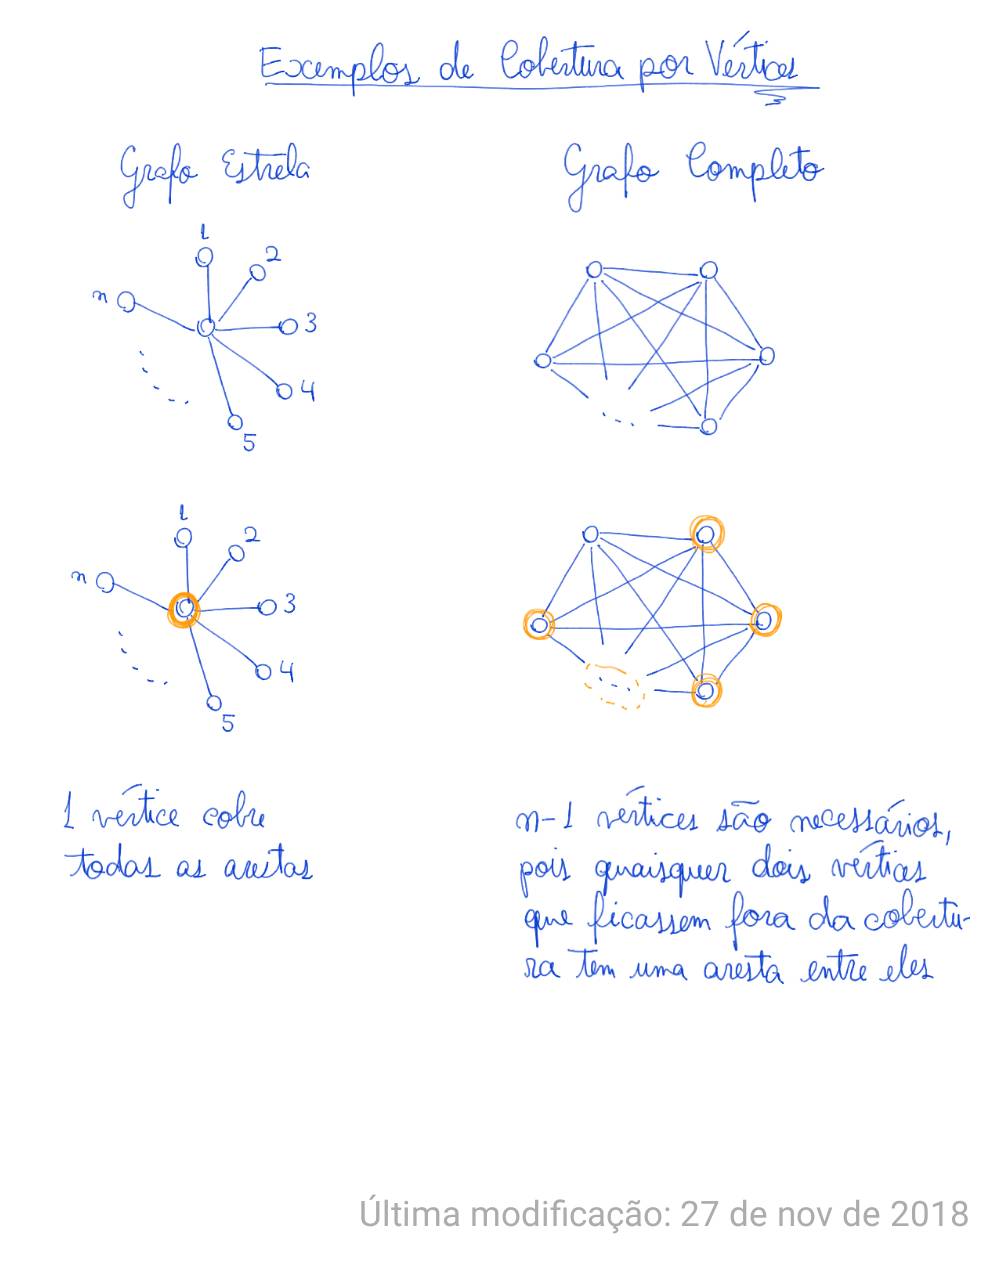 Exemplos de Cobertura por Vértices
Grafo Estrela
Grafo Completo
1
2
n
3
4
5
1
2
n
3
4
5
1 vértice cobre
todas as arestas
n-1 vértices são necessários,
pois quaisquer dois vértices
que ficassem fora da cobertu-
ra tem uma aresta entre eles
Última modificação: 27 de nov de 2018